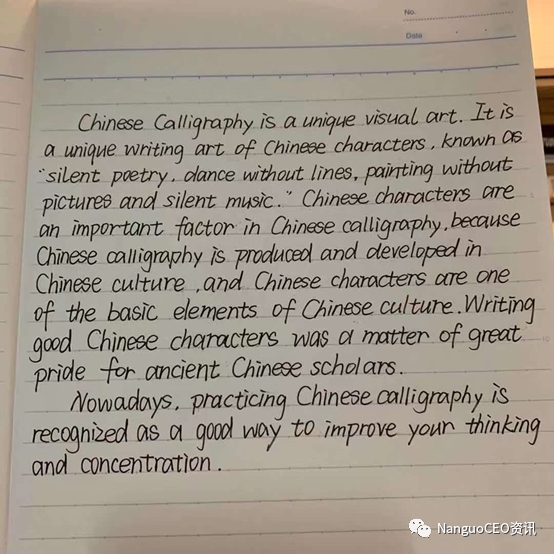 No.
Date
Chinese Calligraphy is a unique visual art. It is
a unique writing art of Chinese characters, known as
"silent poetry, dance without lines, painting without
pictures and silent music." Chinese characters are
an important factor in Chinese calligraphy, because
Chinese calligraphy is produced and developed in
Chinese culture, and Chinese characters are one
of the basic elements of Chinese culture. Writing
good Chinese characters was a matter of great
pride for ancient Chinese scholars.
Nowadays, practicing Chinese calligraphy is
recognized as a good way to improve your thinking
and concentration.
NanguoCEO资讯